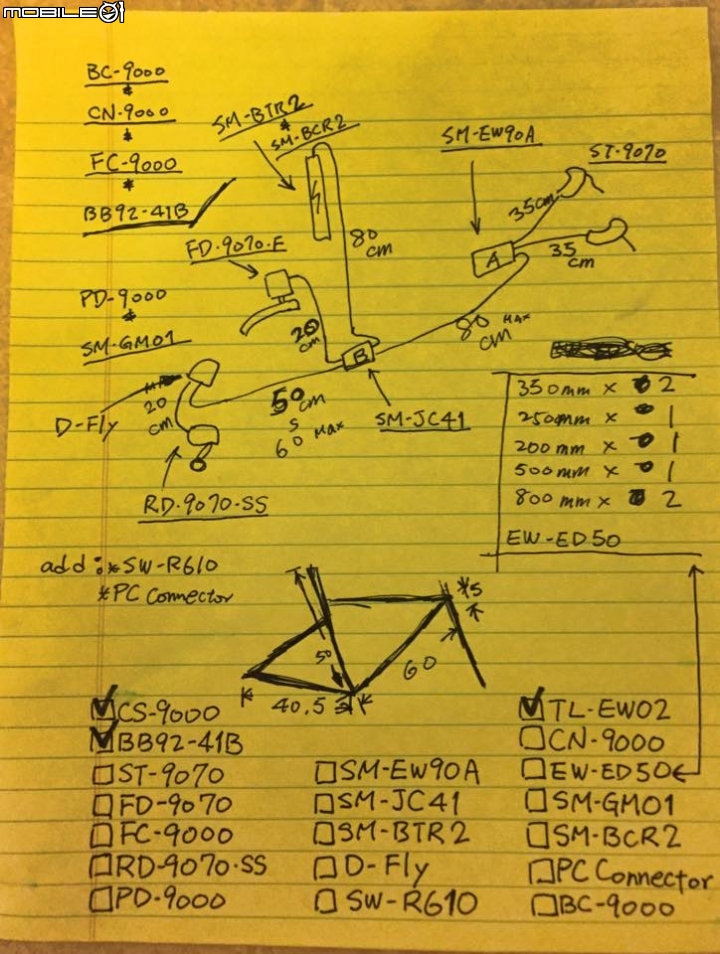 MOBILE01
BC-9000
*
CN-9000
*
FC-9000
*
BB92-41B
PD-9000
*
SM-GM01
SM-BTR2
*
SM-BCR2
SM-EW90A
ST-9070
35cm
A
35
cm
80
cm
FD-9070-F
20
cm
B
80 MAX
cm
SM-JC41
50cm
S
60 Max
D-Fly
20
cm
RD-9070-SS
350mm x 2
250mm x 1
200mm x 1
500mm x 1
800mm x 2
EW-ED50
add: *SW-R610
*PC Connector
*5
50
60
40.5
CS-9000
BB92-41B
ST-9070
FD-9070
FC-9000
RD-9070-SS
PD-9000
SM-EW90A
SM-JC41
SM-BTR2
D-Fly
SW-R610
TL-EW02
CN-9000
EW-ED50
SM-GM01
SM-BCR2
PC Connector
BC-9000